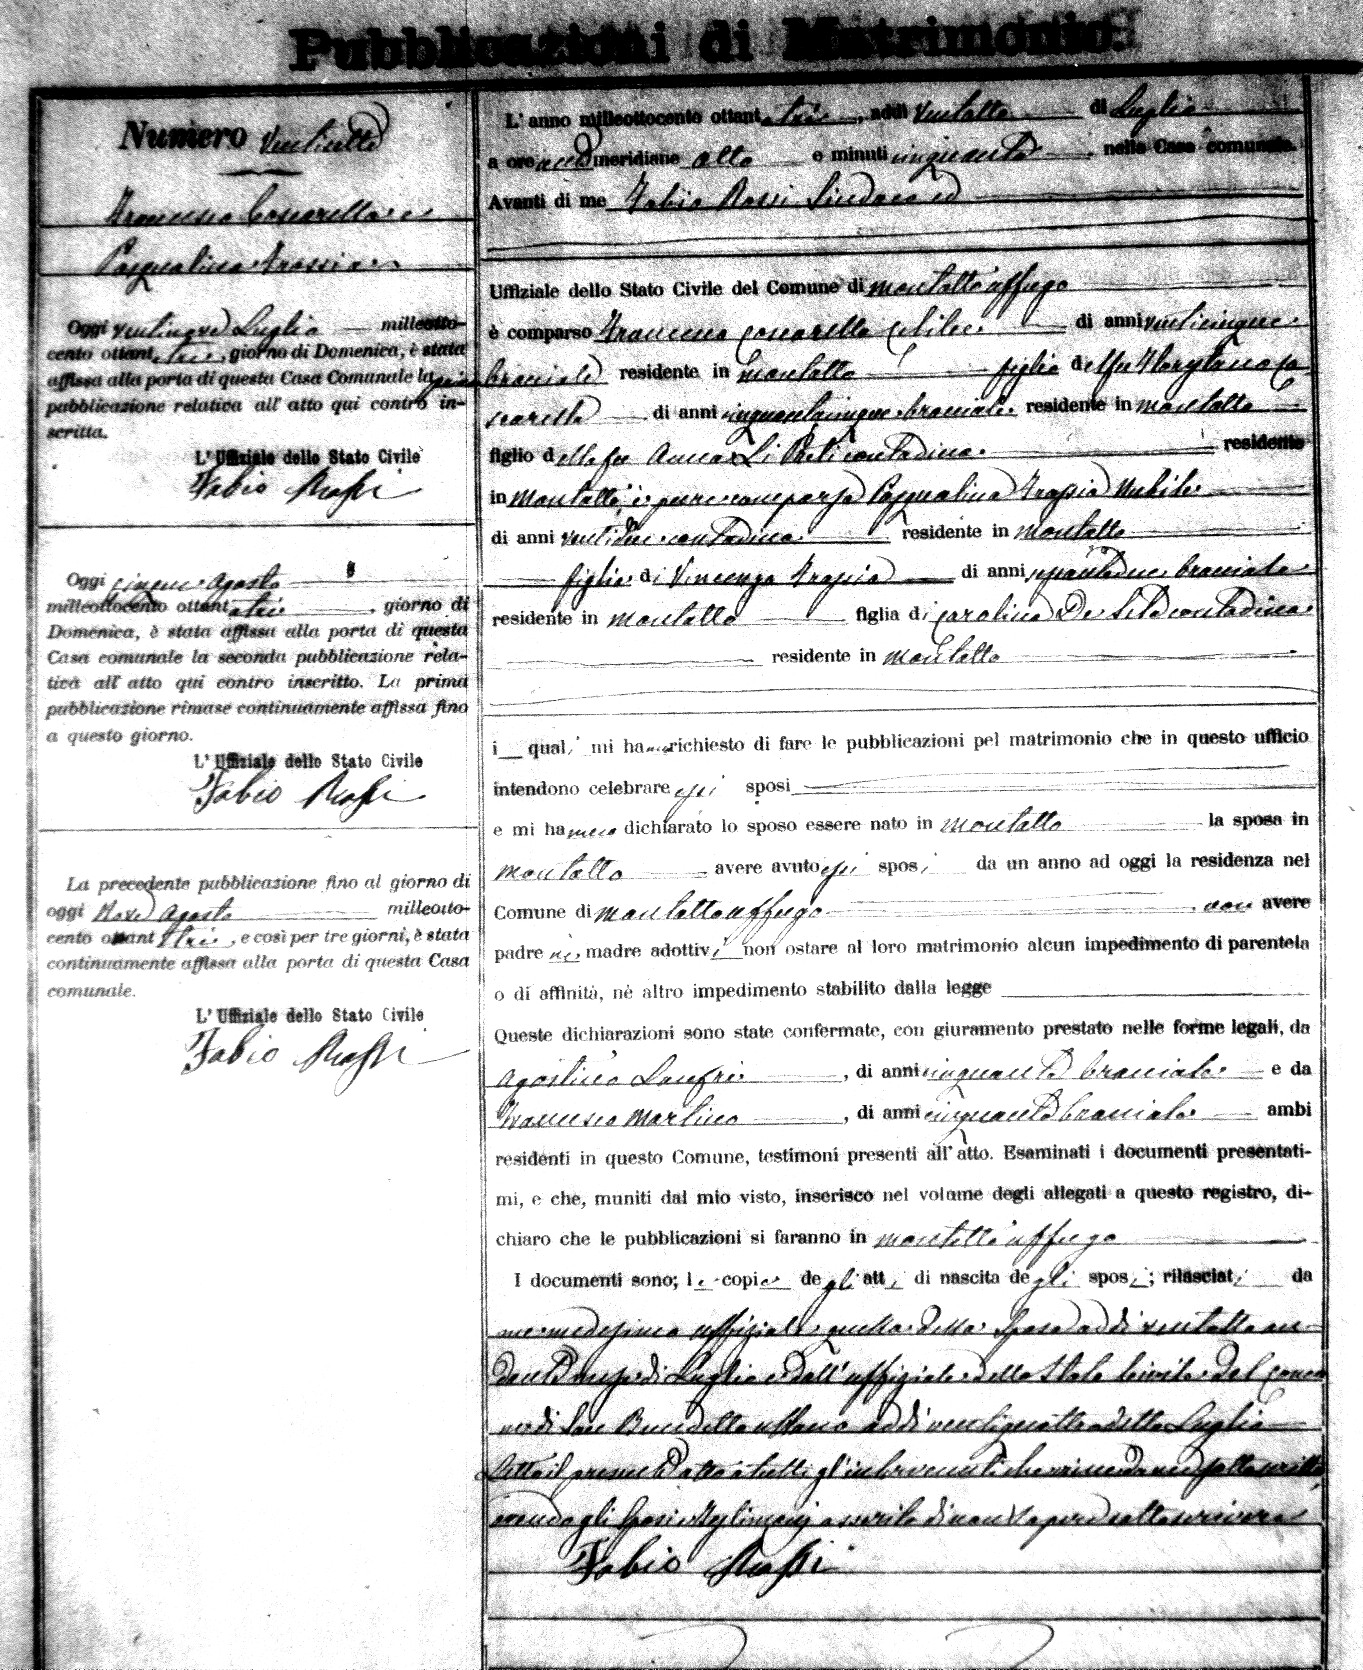 Pubblicazioni di Matrimonio.
Numero Ventisette
Francesco Coscarella e
Pasqualina Trassia
Oggi ventinove Luglio milleotto-
cento ottantatrè, giorno di Domenica, è stata
affissa alla porta di questa Casa Comunale la prima
pubblicazione relativa all' atto qui contro in-
scritta.
L' Uffiziale dello Stato Civile
Fabio Rossi
Oggi cinque Agosto
milleottocento ottantatrè, giorno di
Domenica, è stata affissa alla porta di questa
Casa comunale la seconda pubblicazione rela-
tiva all' atto qui contro inscritto. La prima
pubblicazione rimase continuamente affissa fino
a questo giorno.
L' Uffiziale dello Stato Civile
Fabio Rossi
La precedente pubblicazione fino al giorno di
oggi Nove Agosto milleotto-
cento ottantatrè, e così per tre giorni, è stata
continuamente affissa alla porta di questa Casa
comunale.
L' Uffiziale dello Stato Civile
Fabio Rossi
L' anno milleottocento ottantatrè, addì ventotto di Luglio
a ore meridiane otto e minuti cinquanta, nella Casa comunale.
Avanti di me Fabio Rossi Sindaco ed
Uffiziale dello Stato Civile del Comune di Montalto uffugo
è comparso Francesco Coscarella celibe di anni venticinque
bracciale residente in Montalto figlio del fu Co
scarella di anni cinquantacinque bracciale residente in Montalto
figlio della fu Anna Li Preti contadina residente
in Montalto, è pure comparsa Pasqualina Trassia Nubile
di anni ventidue contadina residente in Montalto
figlia di Vincenzo Trassia di anni bracciale
residente in Montalto figlia di Carolina De contadina
residente in Montalto
i quali mi hanno richiesto di fare le pubblicazioni pel matrimonio che in questo ufficio
intendono celebrare essi sposi
e mi hanno dichiarato lo sposo essere nato in Montalto la sposa in
Montalto avere avuto essi sposi da un anno ad oggi la residenza nel
Comune di Montalto uffugo non avere
padre nè madre adottivi non ostare al loro matrimonio alcun impedimento di parentela
o di affinità, nè altro impedimento stabilito dalla legge
Queste dichiarazioni sono state confermate, con giuramento prestato nelle forme legali, da
Agostino Lanfri, di anni cinquanta bracciale e da
Francesco Martino, di anni cinquanta bracciale ambi
residenti in questo Comune, testimoni presenti all' atto. Esaminati i documenti presentati-
mi, e che, muniti dal mio visto, inserisco nel volume degli allegati a questo registro, di-
chiaro che le pubblicazioni si faranno in Montalto uffugo
I documenti sono; le copie degli atti di nascita degli sposi; rilasciati da
me medesimo uffiziale quella della Sposa addì ventotto an-
dante mese di Luglio e dall' uffiziale dello Stato Civile del Comu
ne di San Benedetto Ullano addì ventiquattro detto Luglio
Letto il presente atto a tutti gl' intervenuti sottoscritto
avendo gli Sposi e Testimoni asserito di non sapere sottoscrivere
Fabio Rossi